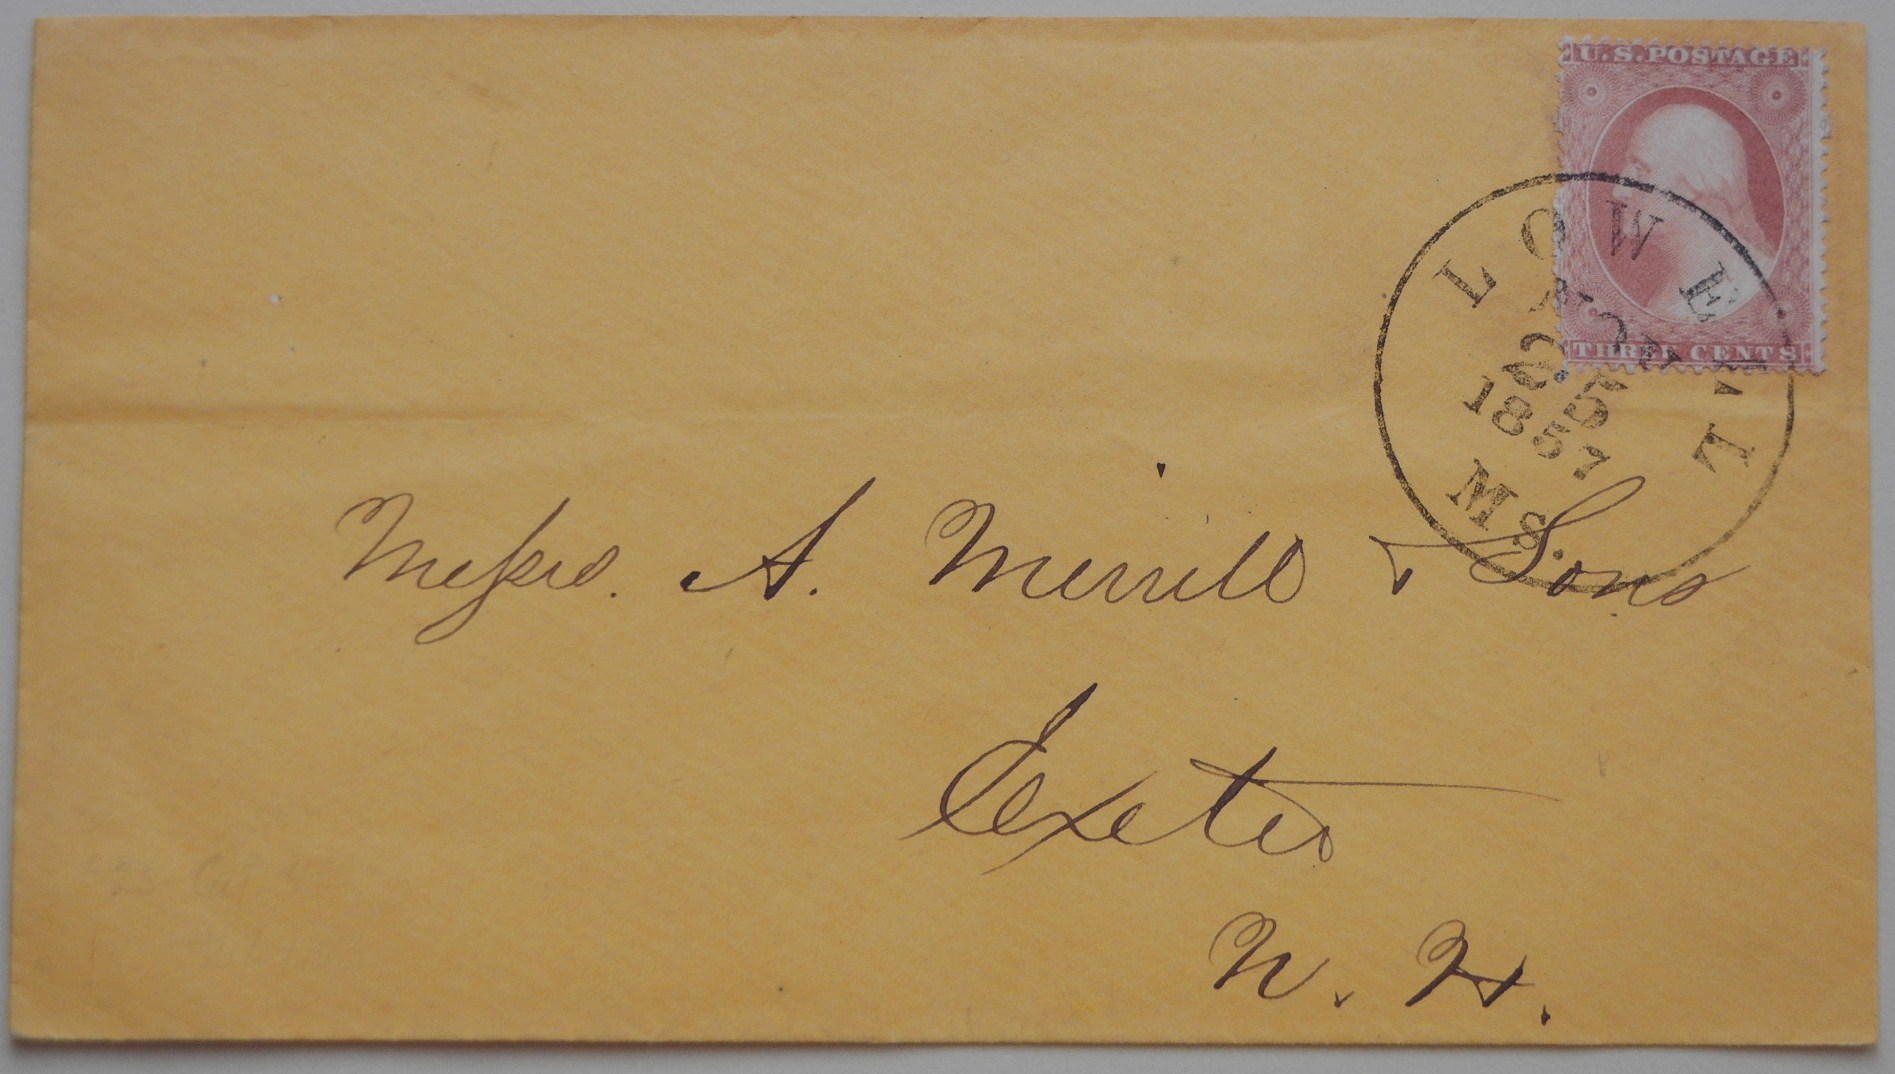 U.S.POSTAGE
THREE CENTS
LOWELL
NOV
25
1857
MS.
Messrs. A. Merrill & Sons
Exeter
N. H.